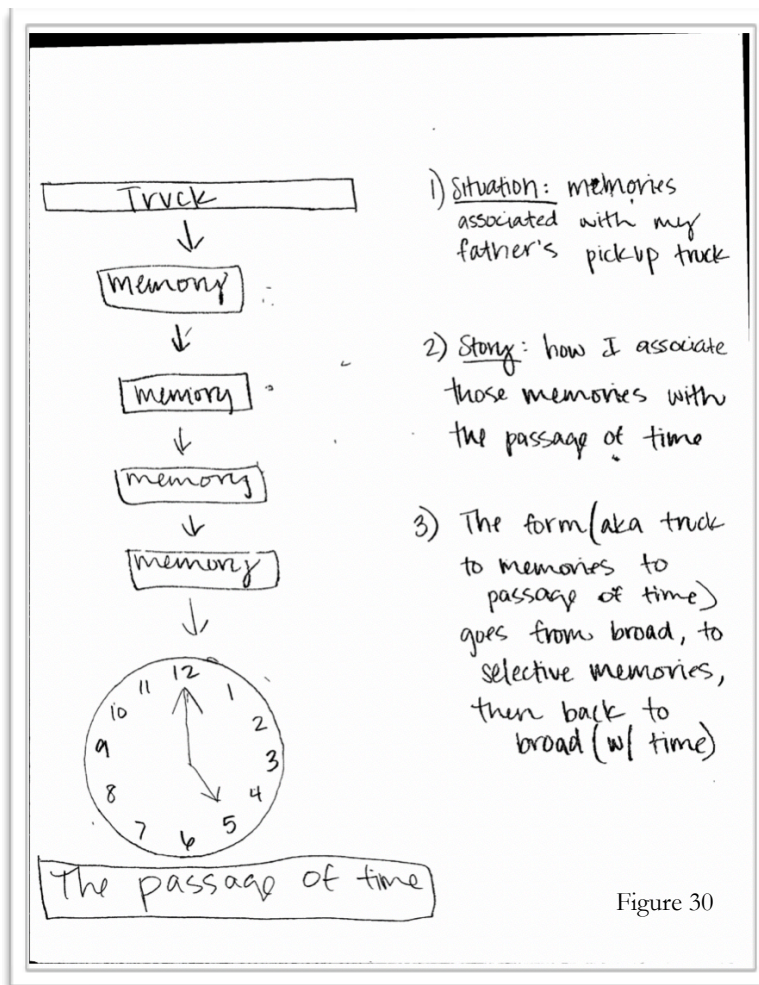 Truck
memory
memory
memory
memory
12
1
2
3
4
5
6
7
8
9
10
11
The passage of time
1) Situation: memories
associated with my
father's pickup truck
2) Story: how I associate
those memories with
the passage of time
3) The form (aka truck
to memories to
passage of time)
goes from broad, to
selective memories,
then back to
broad (w/ time)
Figure 30